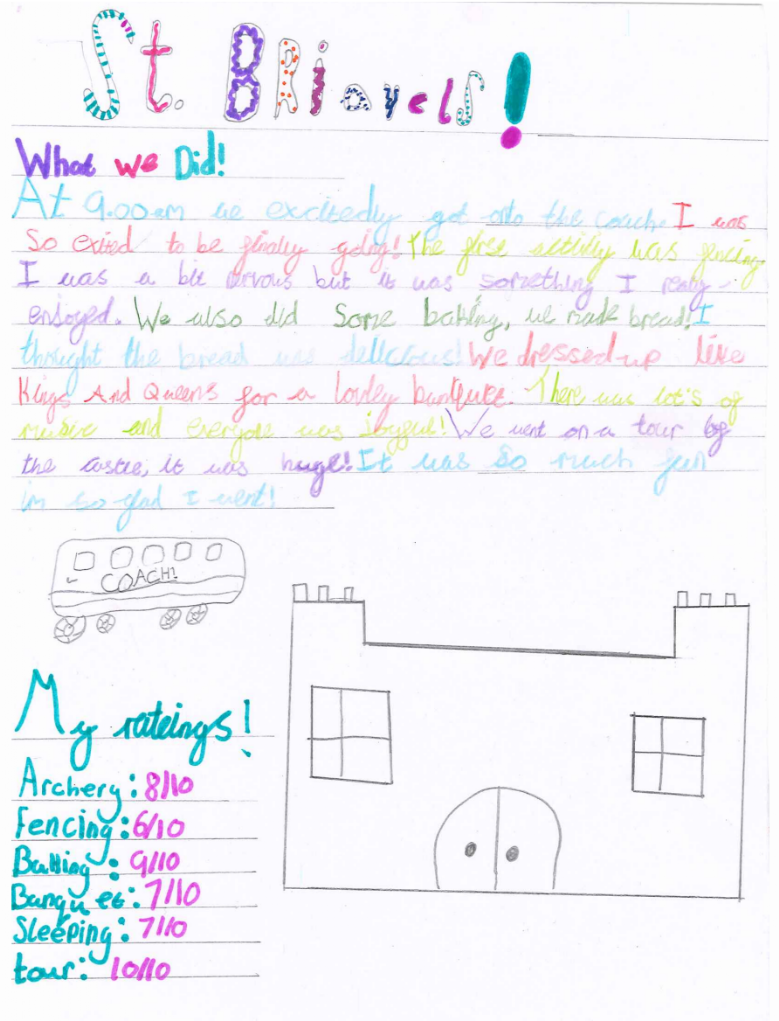 St. BRiavels!
What we Did!
At 9.00am we excitedly got onto the coach. I was
So exited to be finaly going! The first activity was fencing
I was a bit nervous but it was something I realy
enjoyed. We also did Some baking, we made bread! I
thought the bread was dellicious! We dressed-up like
Kings And Queens for a lovley banquet. There was lot's of
music and everyone was joyful! We went on a tour of
the castle, it was huge! It was So much fun
im so glad I went!
COACH!
My rateings!
Archery: 8/10
Fencing: 6/10
Baking: 9/10
Banquet: 7/10
Sleeping: 7/10
tour: 10/10